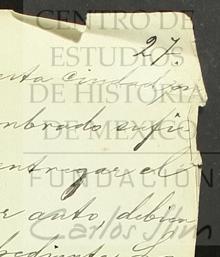 27.
CENTRO DE
ESTUDIOS
DE HISTORIA
DE MEXICO
FUNDACIÓN
Carlos Slim
esta ciudad en
ombrado sufi
entregar el
r auto, debien